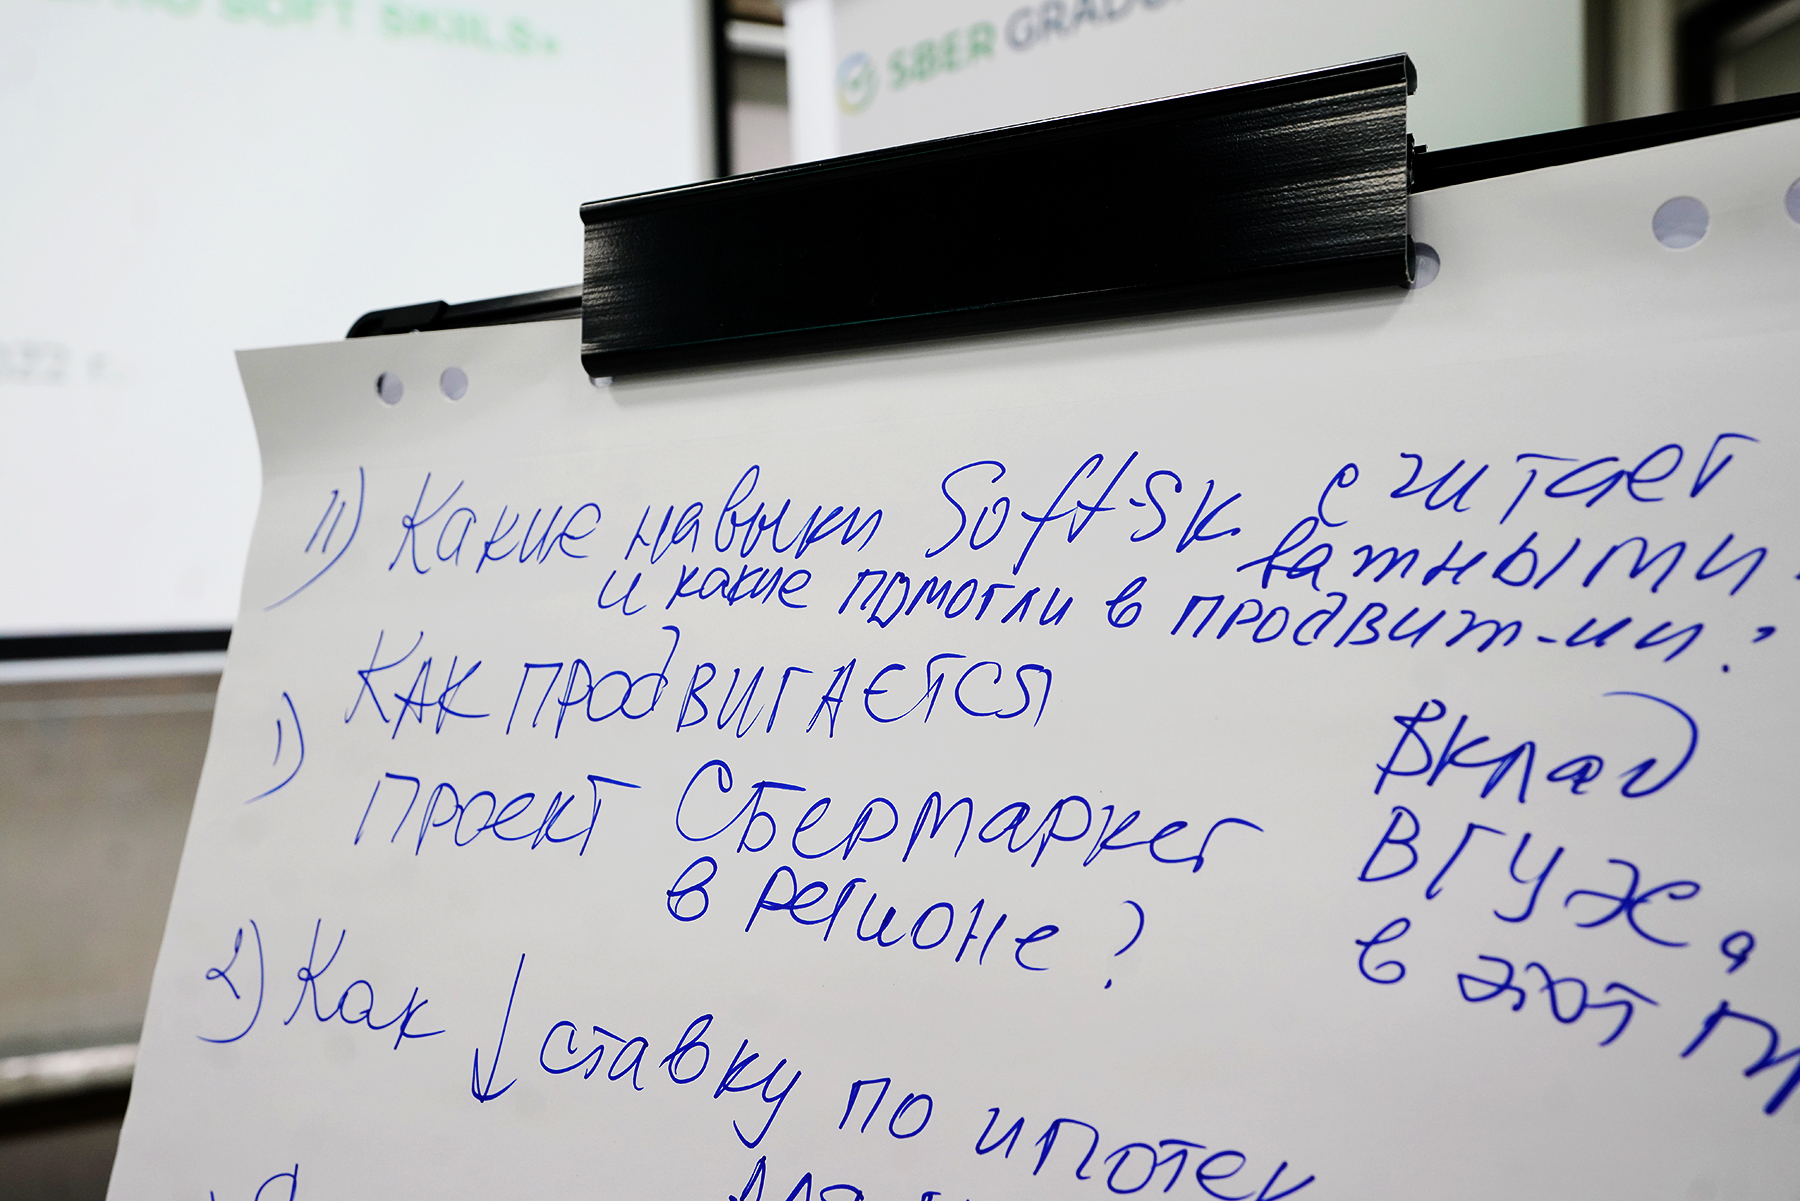 SOFT SKILLS»
SBER GRADU
22 г.
11) Какие навыки Soft-Sk. считает
важными
и какие помогли в продвиж-ии?
1) КАК ПРОДВИГАЕТСЯ
ПРОЕКТ Сбермаркет
в регионе?
Вклад
ВГУЖе,
в этот п
2) Как ↓ ставку по ипотек
для